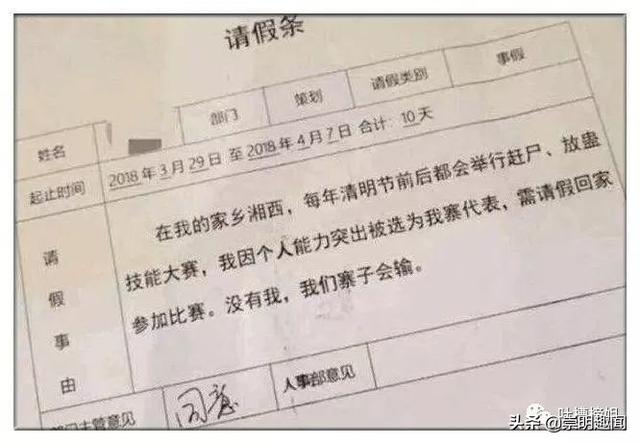 请假条
姓名 部门 策划 请假类别 事假
起止时间 2018年3月29日至2018年4月7日合计:10天
请假事由
在我的家乡湘西，每年清明节前后都会举行赶尸、放蛊
技能大赛，我因个人能力突出被选为我寨代表，需请假回家
参加比赛。没有我，我们寨子会输。
部门主管意见 同意 人事部意见
吐槽榜姐
头条@崇明趣闻